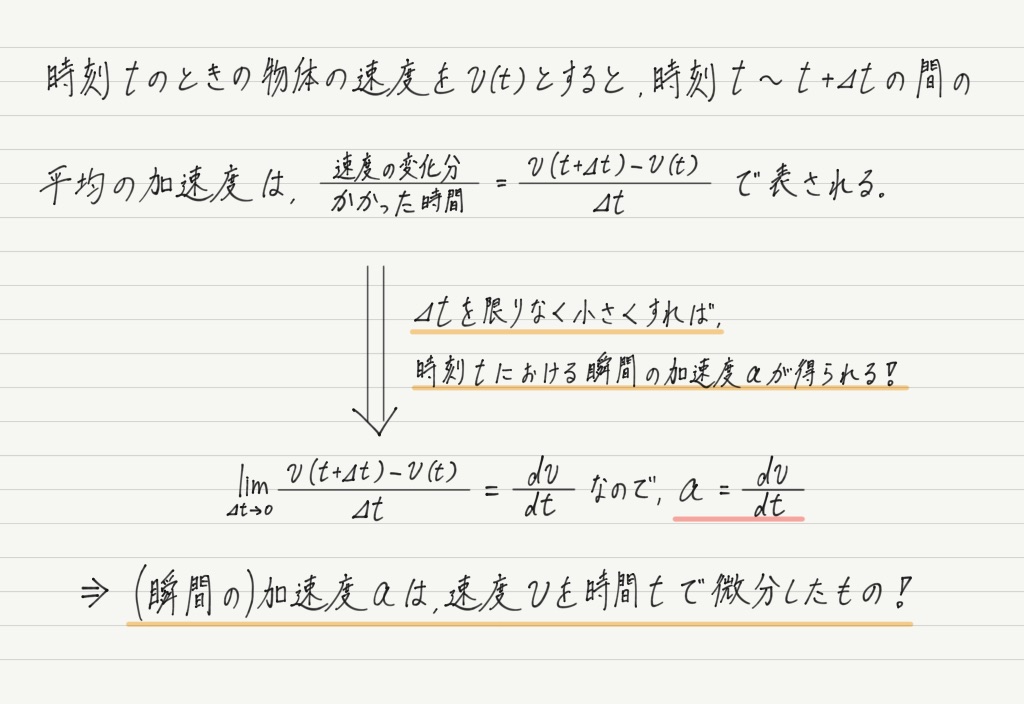 時刻 t のときの物体の速度を v(t) とすると, 時刻 t ～ t+Δt の間の
平均の加速度は, 速度の変化分/かかった時間 = (v(t+Δt)-v(t))/Δt で表される。
Δtを限りなく小さくすれば,
時刻 t における瞬間の加速度 a が得られる!
lim Δt→0 (v(t+Δt)-v(t))/Δt = dv/dt なので, a = dv/dt
⇒ (瞬間の)加速度 a は, 速度 v を時間 t で微分したもの!